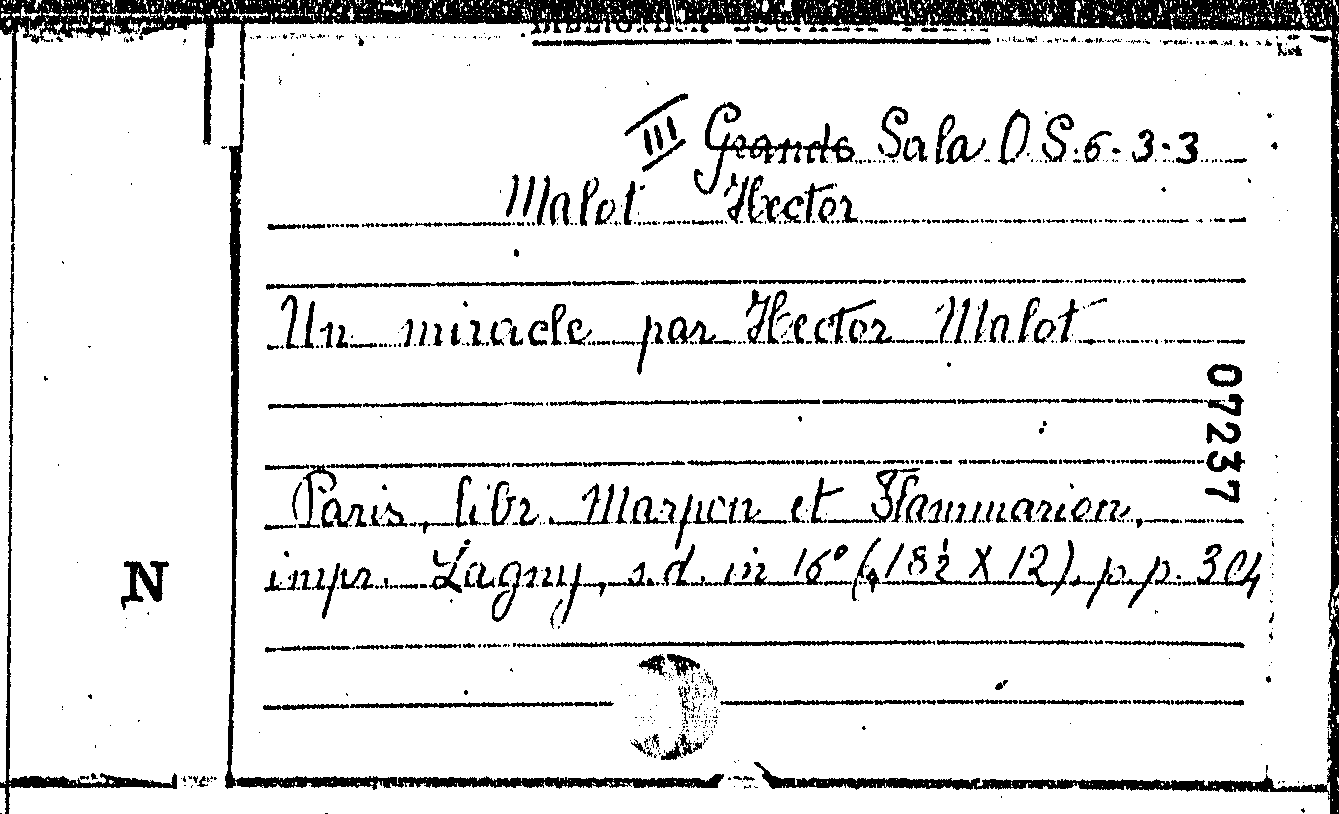 III Grands Sala O.S.6-3-3
Malot Hector
Un miracle par Hector Malot
07237
Paris, libr. Marpon et Flammarion,
impr. Lagny, s.d. in 16° (18½ X 12), p.p. 304
N